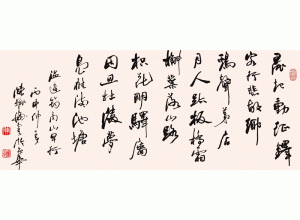 晨起動征鐸
客行悲故鄉
鷄聲茅店
月人跡板橋霜
槲葉落山路
枳花明驛牆
因思杜陵夢
鳧雁滿池塘
温庭筠商山早行
丙申仲冬